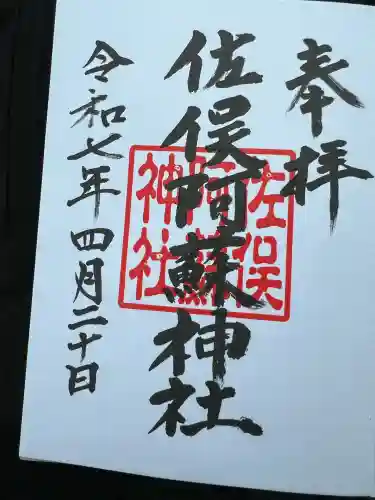 奉拝
佐俣阿蘇神社
佐俣
阿蘇
神社
令和七年四月二十日